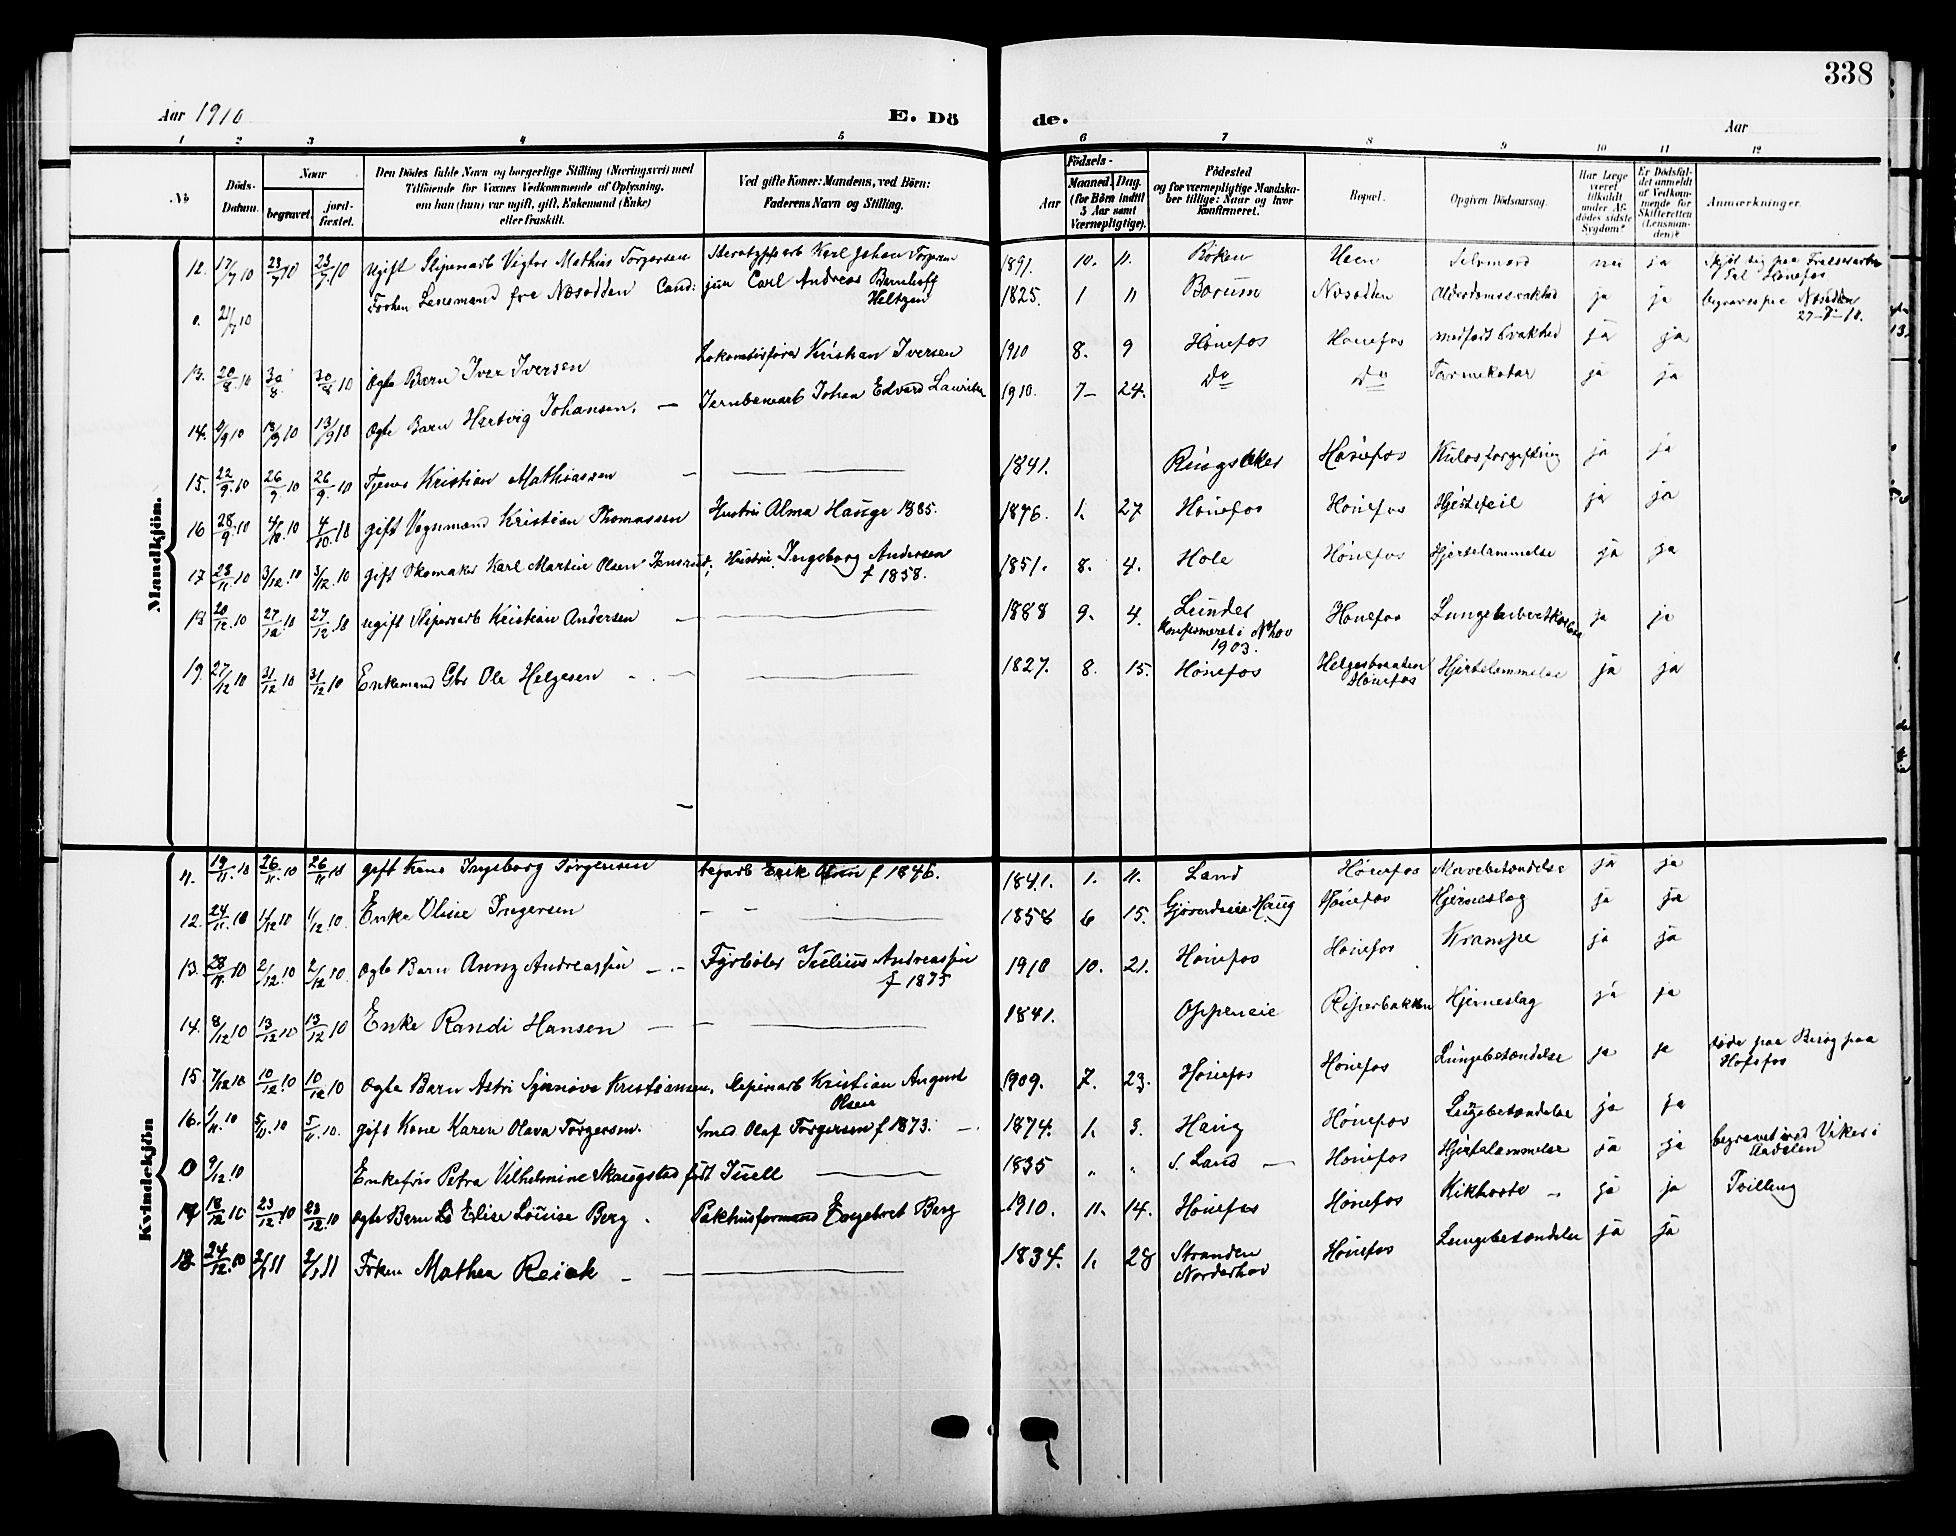 338
Aar 1910 E. Dö de. Aar
1 2 3 4 5 6 7 8 9 10 11 12
№
Döds-Datum.
Naar
begravet. jordfæstet.
Den Dödes fulde Navn og borgerlige Stilling (Næringsvei) med
Tilföiende for Voxnes Vedkommende af Oplysning,
om han (hun) var ugift, gift, Enkemand (Enke)
eller fraskilt.
Ved gifte Koner: Mandens, ved Börn:
Faderens Navn og Stilling.
Födsels-
Aar Maaned. Dag.
(for Börn indtil
5 Aar samt
Værnepligtige).
Födested
og for værnepligtige Mandska-
ber tillige: Naar og hvor
konfirmeret.
Bopæl.
Opgiven Dödsaarsag.
Har Læge
været
tilkaldt
under Af-
dödes sidste
Sygdom?
Er Dödsfal-
det anmeldt
af Vedkom-
mende for
Skifteretten
(Lensman-
den)?
Anmærkninger.
Mandkjön.
12. 17/7 10 23/7 10 23/7 10 Ugift Slipenarb Vigtor Mathias Torgersen Karl Johan 1891. 10. 11. Röken Heen Selvmord nei ja Skjöt sig paa
0. 21/7 10 Forhen Lensmand for Næsodden Cand: jur Carl Andreas Barnhoff Heltzen 1825. 1 11 Bærum Næsodden ja ja begraves paa Næsodden
13. 20/8 10 30/8 30/8 10 Ægte Barn Iver Iversen Lokomotivförer Kristian Iversen 1910 8. 9 Hönefos Hönefos medfödt Svakhed ja ja
14. 9/9 10 13/9 10 13/9 10 Ægte Barn Hartvig Johansen. — Jernbanearb Johan Edvard 1910. 7- 24. Do Do Tarmekatar ja ja
15. 22/9 10 26/9 10 26/9 10 Tjener Kristian Mathiassen — 1841. Ringsaker Hönefos Kulosforgiftning ja ja
16 28/9 10 4/10 10 4/10 10 gift Vognmand Kristian Thomassen Hustru Alma Hauge 1885. 1876. 1. 27 Hönefos Hönefos Hjertefeil ja ja
17 28/11 10 3/12 10 3/12 10 gift Skomaker Karl Martin Olsen Hustru Ingeborg Andersen f 1858. 1851. 8. 4. Hole Hönefos Hjertelammelse ja ja
18 20/12 10 27/12 10 27/12 10 ugift Slipenarb Kristian Andersen — 1888 9. 4. Lunder Konfirmeret i N.hov 1903. Hönefos ja ja
19. 27/12 10 31/12 10 31/12 10 Enkemand Gbr Ole Helgesen 1827. 8. 15. Hönefos Helgesbraaten Hönefos Hjertelammelse ja ja
Kvindekjön
11. 19/11 10 26/11 10 26/11 10 gift Kone Ingeborg Jörgensen Erik f 1846. 1841. 1. 11. Land Hönefos Mavebetændelse ja ja
12. 24/11 10 1/12 10 1/12 10 Enke Oline Ingersen — 1858 6 15. Haug Hönefos Hjerneslag ja ja
13. 28/11 10 2/12 10 2/12 10 Ægte Barn Anny Andreassen — Fyrböter Julius Andreassen f 1875 1910 10. 21. Hönefos Hönefos Krampe ja ja
14. 8/12 10 13/12 10 13/12 10 Enke Randi Hansen — 1841. Oppeneie Hjerneslag ja ja
15. 7/12 10 10/12 10 10/12 10 Ægte Barn Astri Synnöve Kristiansen. Slipenarb Kristian August Olsen 1909. 7. 23. Hönefos Hönefos Lungebetændelse ja ja döde paa Besög paa Hofsfos
16. 1/11 10 5/11 10 5/11 10. gift Kone Karen Olava Torgersen. Smed. Olaf Torgersen f 1873. — 1874. 1. 3. Haug Hönefos Lungebetændelse ja ja
0 9/12 10 Enkefru Petra Vilhelmine Skaugstad född Juell — 1835 " " S. Land — Hönefos Hjertelammelse ja ja begravet ved Viker i Aadalen
17 18/12 10 23/12 10 23/12 10 Ægte Barn Elise Louise Berg. Pakhusformand Engebret Berg 1910. 11. 14. Hönefos Hönefos Kikhoste — ja ja Tvilling
18. 24/12 10 2/1 11 2/1 11 Fröken Mathea — 1834. 1. 28 Stranden Norderhov Hönefos Lungebetændelse ja ja